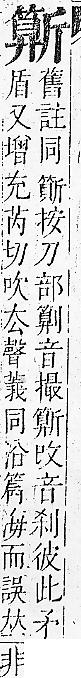 舊註同按刀部音撮改音刹彼此矛
盾又增充芮切吹去聲義同沿篇海而誤𠀤非